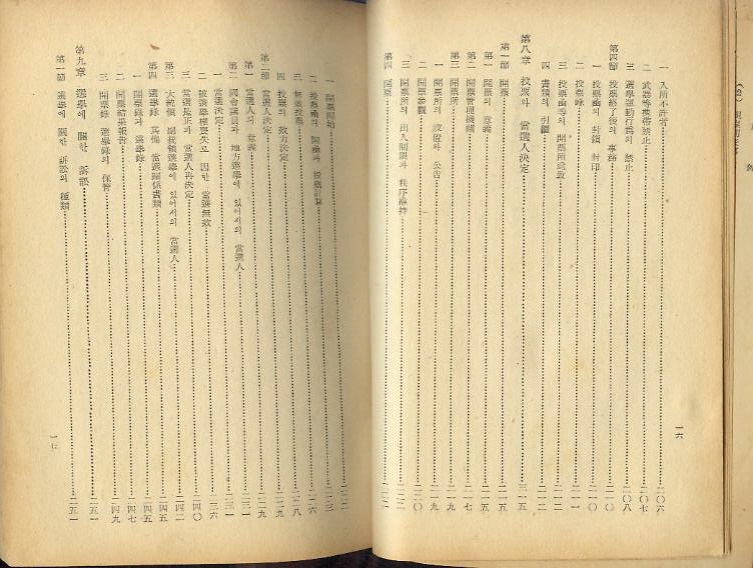 一 入所不許可 二〇六
二 武器等携帶禁止 二〇七
三 選擧運動行爲의 禁止 二〇八
第四節 投票終了後의 事務 二一〇
一 投票函의 封鎖 封印 二一〇
二 投票錄 二一一
三 投票函等의 開票所送致
四 書類의 引繼 二一二
第八章 投票와 當選人決定
第一節 開票 二一五
第一 開票의 意義 二一五
第二 開票管理機關 二一七
第三 開票所 二一九
一 開票所의 設置와 公告 二一九
二 開票參觀 二二〇
三 開票所의 出入制限과 秩序維持 二二二
第四 開票
一六
一 開票開始
二 投票函의 開函과
三 無效投票 二二八
四 投票의 效力決定 二二九
第二節 當選人決定 二二九
第一 當選人의 意義 二三一
第二 國會議員과 地方選擧에 있어서의 當選人 二三一
一 當選決定 二三六
二 被選擧權喪失로 因한 當選無效 二四〇
三 當選是正과 當選人再決定 二四二
第三 大統領 副統領選擧에 있어서의 當選人 二四五
第四 選擧錄 其他 當選關係書類 二四五
一 開票錄과 選擧錄 二四七
二 開票結果報告 二四九
三 開票錄 選擧錄의 保管
第九章 選擧에 關한 訴訟 二五一
第一節 選擧에 關한 訴訟의 種類 二五一